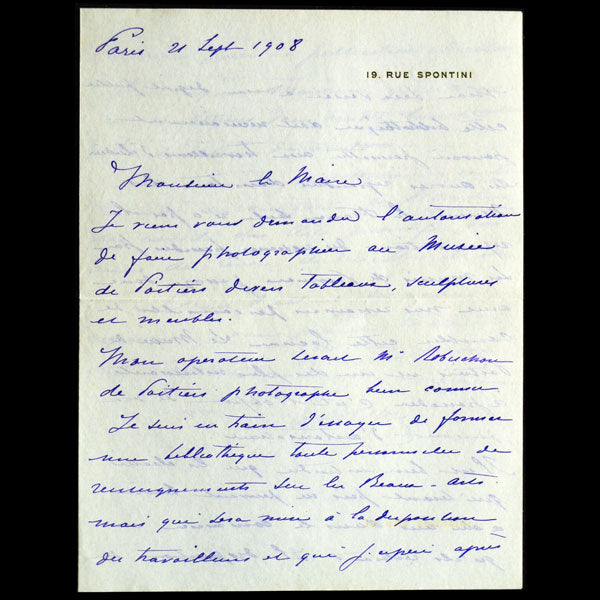 Paris 21 Sept 1908
19. RUE SPONTINI
Monsieur le Maire
Je viens vous demander l'autorisation
de faire photographier au Musée
de Poitiers divers Tableaux, sculptures
et meubles.
Mon operateur serait Mr Robuchon
de Poitiers photographe bien connu
Je suis en train d'essayer de former
une bibliothèque toute personnelle de
renseignements sur les Beaux-arts
mais qui sera mise à la disposition
des travailleurs et qui j'espère après